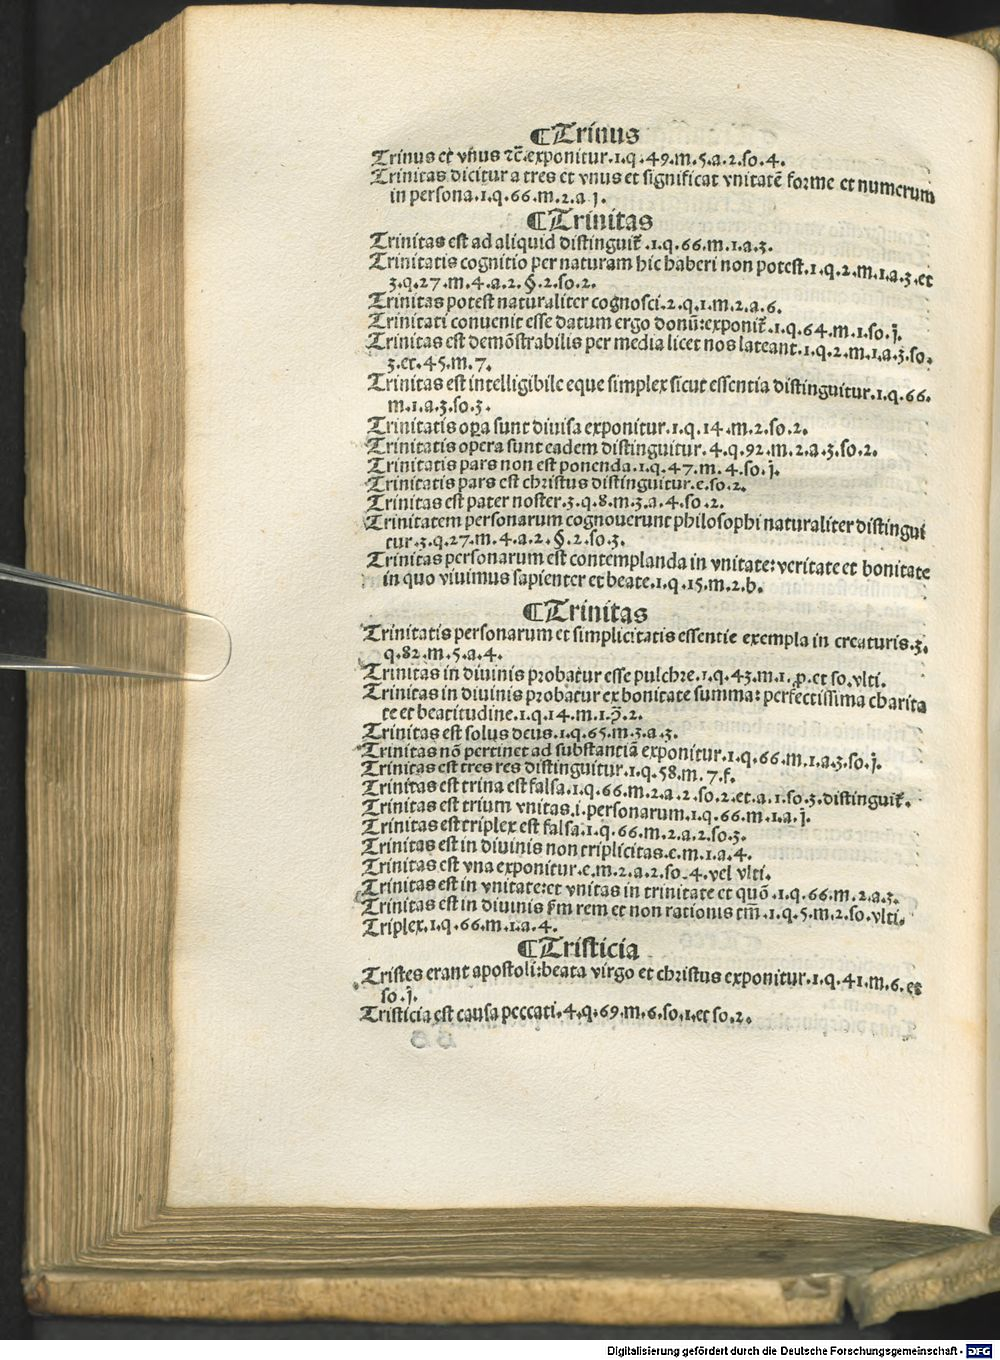 ¶Trinus
Trinus et vnus ⁊c̄.exponitur.1.q.49.m.5.a.2.so.4.
Trinitas dicitur a tres et vnus et significat vnitatē forme et numerum
in persona.1.q.66.m.2.a j.
¶Trinitas
Trinitas est ad aliquid distinguit̄.1.q.66.m.1.a.3.
Trinitatis cognitio per naturam hic haberi non potest.1.q.2.m.1.a.3.et
3.q.27.m.4.a.2.§.2.so.2.
Trinitas potest naturaliter cognosci.2.q.1.m.2.a.6.
Trinitati conuenit esse datum ergo donū:exponit̄.1.q.64.m.1.so.j.
Trinitas est demōstrabilis per media licet nos lateant.1.q.2.m.1.a.3.so.
3.et.45.m.7.
Trinitas est intelligibile eque simplex sicut essentia distinguitur.1.q.66.
m.1.a.3.so.3.
Trinitatis oꝑa sunt diuisa exponitur.1.q.14.m.2.so.2.
Trinitatis opera sunt eadem distinguitur.4.q.92.m.2.a.3.so.2.
Trinitatis pars non est ponenda.1.q.47.m.4.so.j.
Trinitatis pars est christus distinguitur.e.so.2.
Trinitas est pater noster.3.q.8.m.3.a.4.so.2.
Trinitatem personarum cognouerunt philosophi naturaliter distingui
tur.3.q.27.m.4.a.2.§.2.so.3.
Trinitas personarum est contemplanda in vnitate:veritate et bonitate
in quo viuimus sapienter et beate.1.q.15.m.2.b.
¶Trinitas
Trinitatis personarum et simplicitatis essentie exempla in creaturis.3.
q.82.m.5.a.4.
Trinitas in diuinis probatur esse pulchre.1.q.43.m.1.ꝓ.et so.vlti.
Trinitas in diuinis probatur ex bonitate summa: perfectissima charita
te et beatitudine.1.q.14.m.1.ꝓ̄.2.
Trinitas est solus deus.1.q.65.m.3.a.3.
Trinitas nō pertinet ad substantiā exponitur.1.q.66.m.1.a.3.so.j.
Trinitas est tres res distinguitur.1.q.58.m.7.f.
Trinitas est trina est falsa.1.q.66.m.2.a.2.so.2.et.a.1.so.3.distinguit̄.
Trinitas est trium vnitas.i.personarum.1.q.66.m.1.a.j.
Trinitas est triplex est falsa.1.q.66.m.2.a.2.so.3.
Trinitas est in diuinis non triplicitas.e.m.1.a.4.
Trinitas est vna exponitur.e.m.2.a.2.so.4.vel vlti.
Trinitas est in vnitate:et vnitas in trinitate et quō.1.q.66.m.2.a.3.
Trinitas est in diuinis ẜm rem et non rationis tm̄.1.q.5.m.2.so.vlti.
Triplex.1.q.66.m.1.a.4.
¶Tristicia
Tristes erant apostoli:beata virgo et christus exponitur.1.q.41.m.6.et
so.j.
Tristicia est causa peccati.4.q.69.m.6.so.1.et so.2.
Digitalisierung gefördert durch die Deutsche Forschungsgemeinschaft - DFG